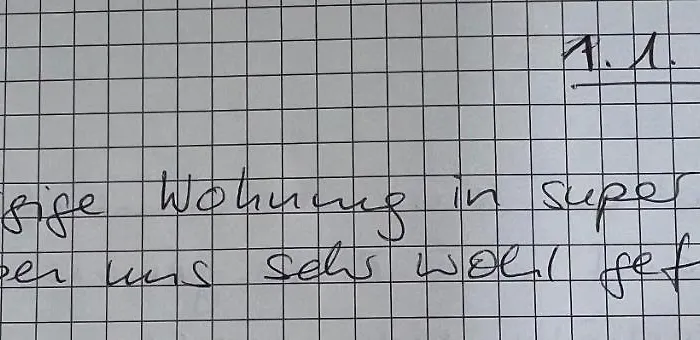 1.1.
gige Wohnung in super
ben uns sehr wohl gef